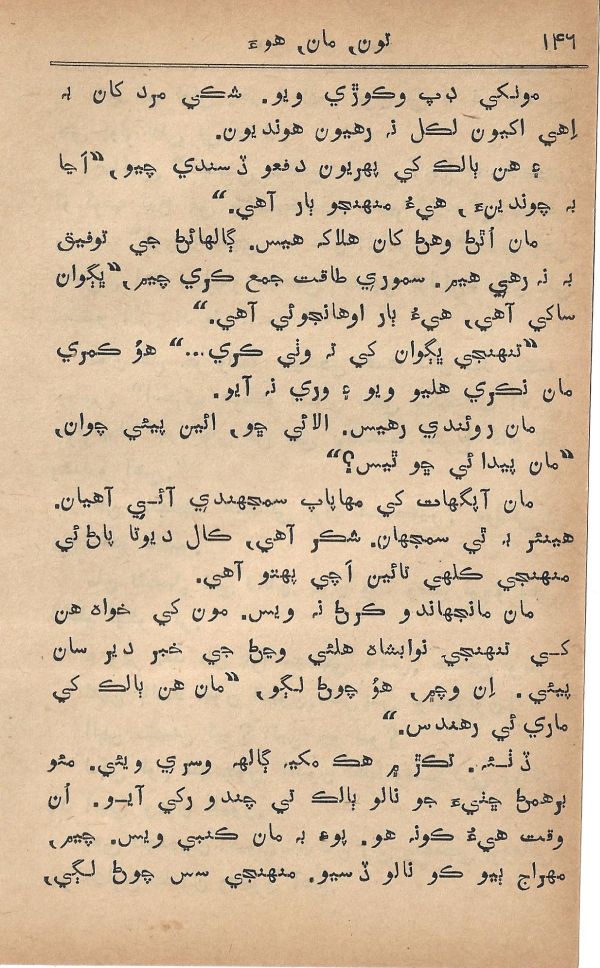 ۱۴۶ تون، مان، هوءَ
مونکي ڊپ وڪوڙي ويو. شڪي مرد کان بہ
اِهي اکيون لڪل نہ رهيون هونديون.
۽ هن ٻالڪ کي پهريون دفعو ڏسندي چيو، ”اَڃا
بہ چوندينءَ، هيءُ منهنجو ٻار آهي.“
مان اُٿڻ وهڻ کان هلاڪ هيس. ڳالهائڻ جي توفيق
بہ نہ رهي هيم. سموري طاقت جمع ڪري چيم، ”ڀڳوان
ساکي آهي، هيءُ ٻار اوهانجوئي آهي.“
”تنهنجي ڀڳوان کي تہ وٺي ڪري...“ هؤ ڪمري
مان نڪري هليو ويو ۽ وري نہ آيو.
مان روئندي رهيس. الائي ڇو، ائين پيئي چوان،
”مان پيدا ئي ڇو ٿيس؟“
مان آپگهات کي مهاپاپ سمجهندي آئي آهيان.
هينئر بہ ٿي سمجهان. شڪر آهي، ڪال ديوتا پاڻ ئي
منهنجي ڪلهي تائين اَچي پهتو آهي.
مان مانجهاندو ڪرڻ نہ ويس. مون کي خواه هن
کي تنهنجي نوابشاه هلئي وڃڻ جي خبر دير سان
پيئي. اِن وچ ۾، هؤ چوڻ لڳو، ”مان هن ٻالڪ کي
ماري ئي رهندس.“
ڏٺئہ. تڪڙ ۾ هڪ مکيہ ڳالهہ وسري ويئي. مئو
برهمڻ ڇٺيءَ جو نالو ٻالڪ تي چندو رکي آيو. اُن
وقت هيءُ ڪونہ هو. پوءِ بہ مان ڪنبي ويس. چيم،
مهراج ٻيو ڪو نالو ڏسيو. منهنجي سس چوڻ لڳي،